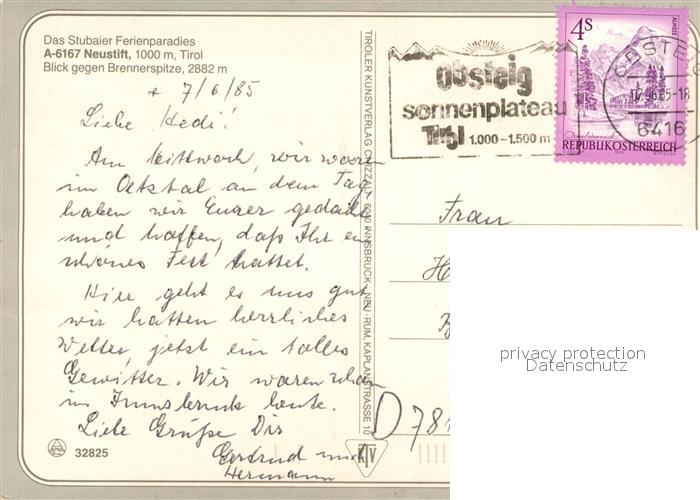 Das Stubaier Ferienparadies
A-6167 Neustift, 1000 m, Tirol
Blick gegen Brennerspitze, 2882 m
7/6/85
Liebe Hedi!
Am Mittwoch, wir waren
im Oetztal an dem Tag
haben wir Eurer gedacht
und hoffen, daß Ihr ein
schönes Fest hattet.
Hier geht es uns gut
wir hatten herrliches
Wetter, jetzt ein tolles
Gewitter. Wir waren schon
in Innsbruck heute.
Liebe Grüße Dir
Gertrud und
Hermann
32825
TIROLER KUNSTVERLAG CHIZZALI · 6020 INNSBRUCK · NEU-RUM, KAPLANSTRASSE 10
KTV
obsteig
sonnenplateau
Tirol 1.000-1.500 m
4S
ALMSEE
REPUBLIK ÖSTERREICH
OBSTEIG
-18
6416
Frau
H
D 781
privacy protection
Datenschutz